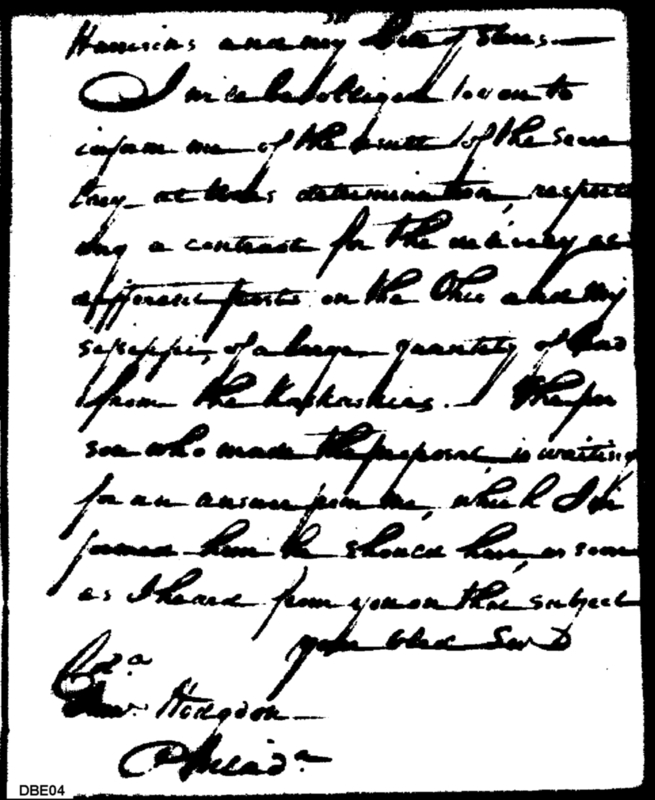 and my
I will be obliged to you to
inform me of the result of the Secre
tary at Wars determination, respect
ing a contract for the delivery at
different posts on the Ohio and Mis
sisippi, of a large quantity of lead
from the Kaskaskias. The per
son who made the proposal, is waiting
for an answer from me, which I in
formed him he should have, as soon
as I heard from you on that subject
your Obed Serv
Hodgdon
Philada
DBE04